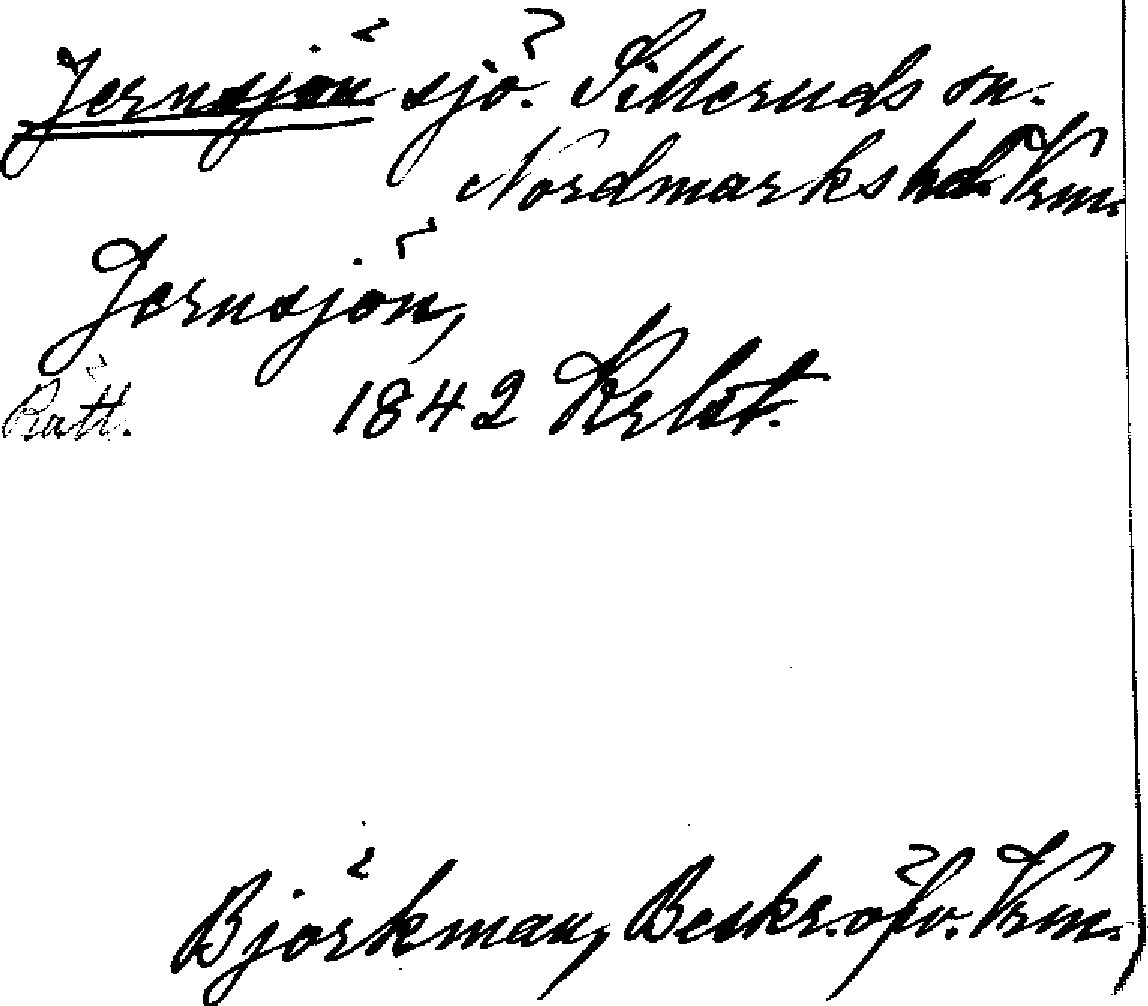 Jernsjön sjö. Silleruds sn.
Nordmarks hd. Vrm.
Jernsjön,
Rätt. 1842
Björkman, Beskr. öfv. Vrm.